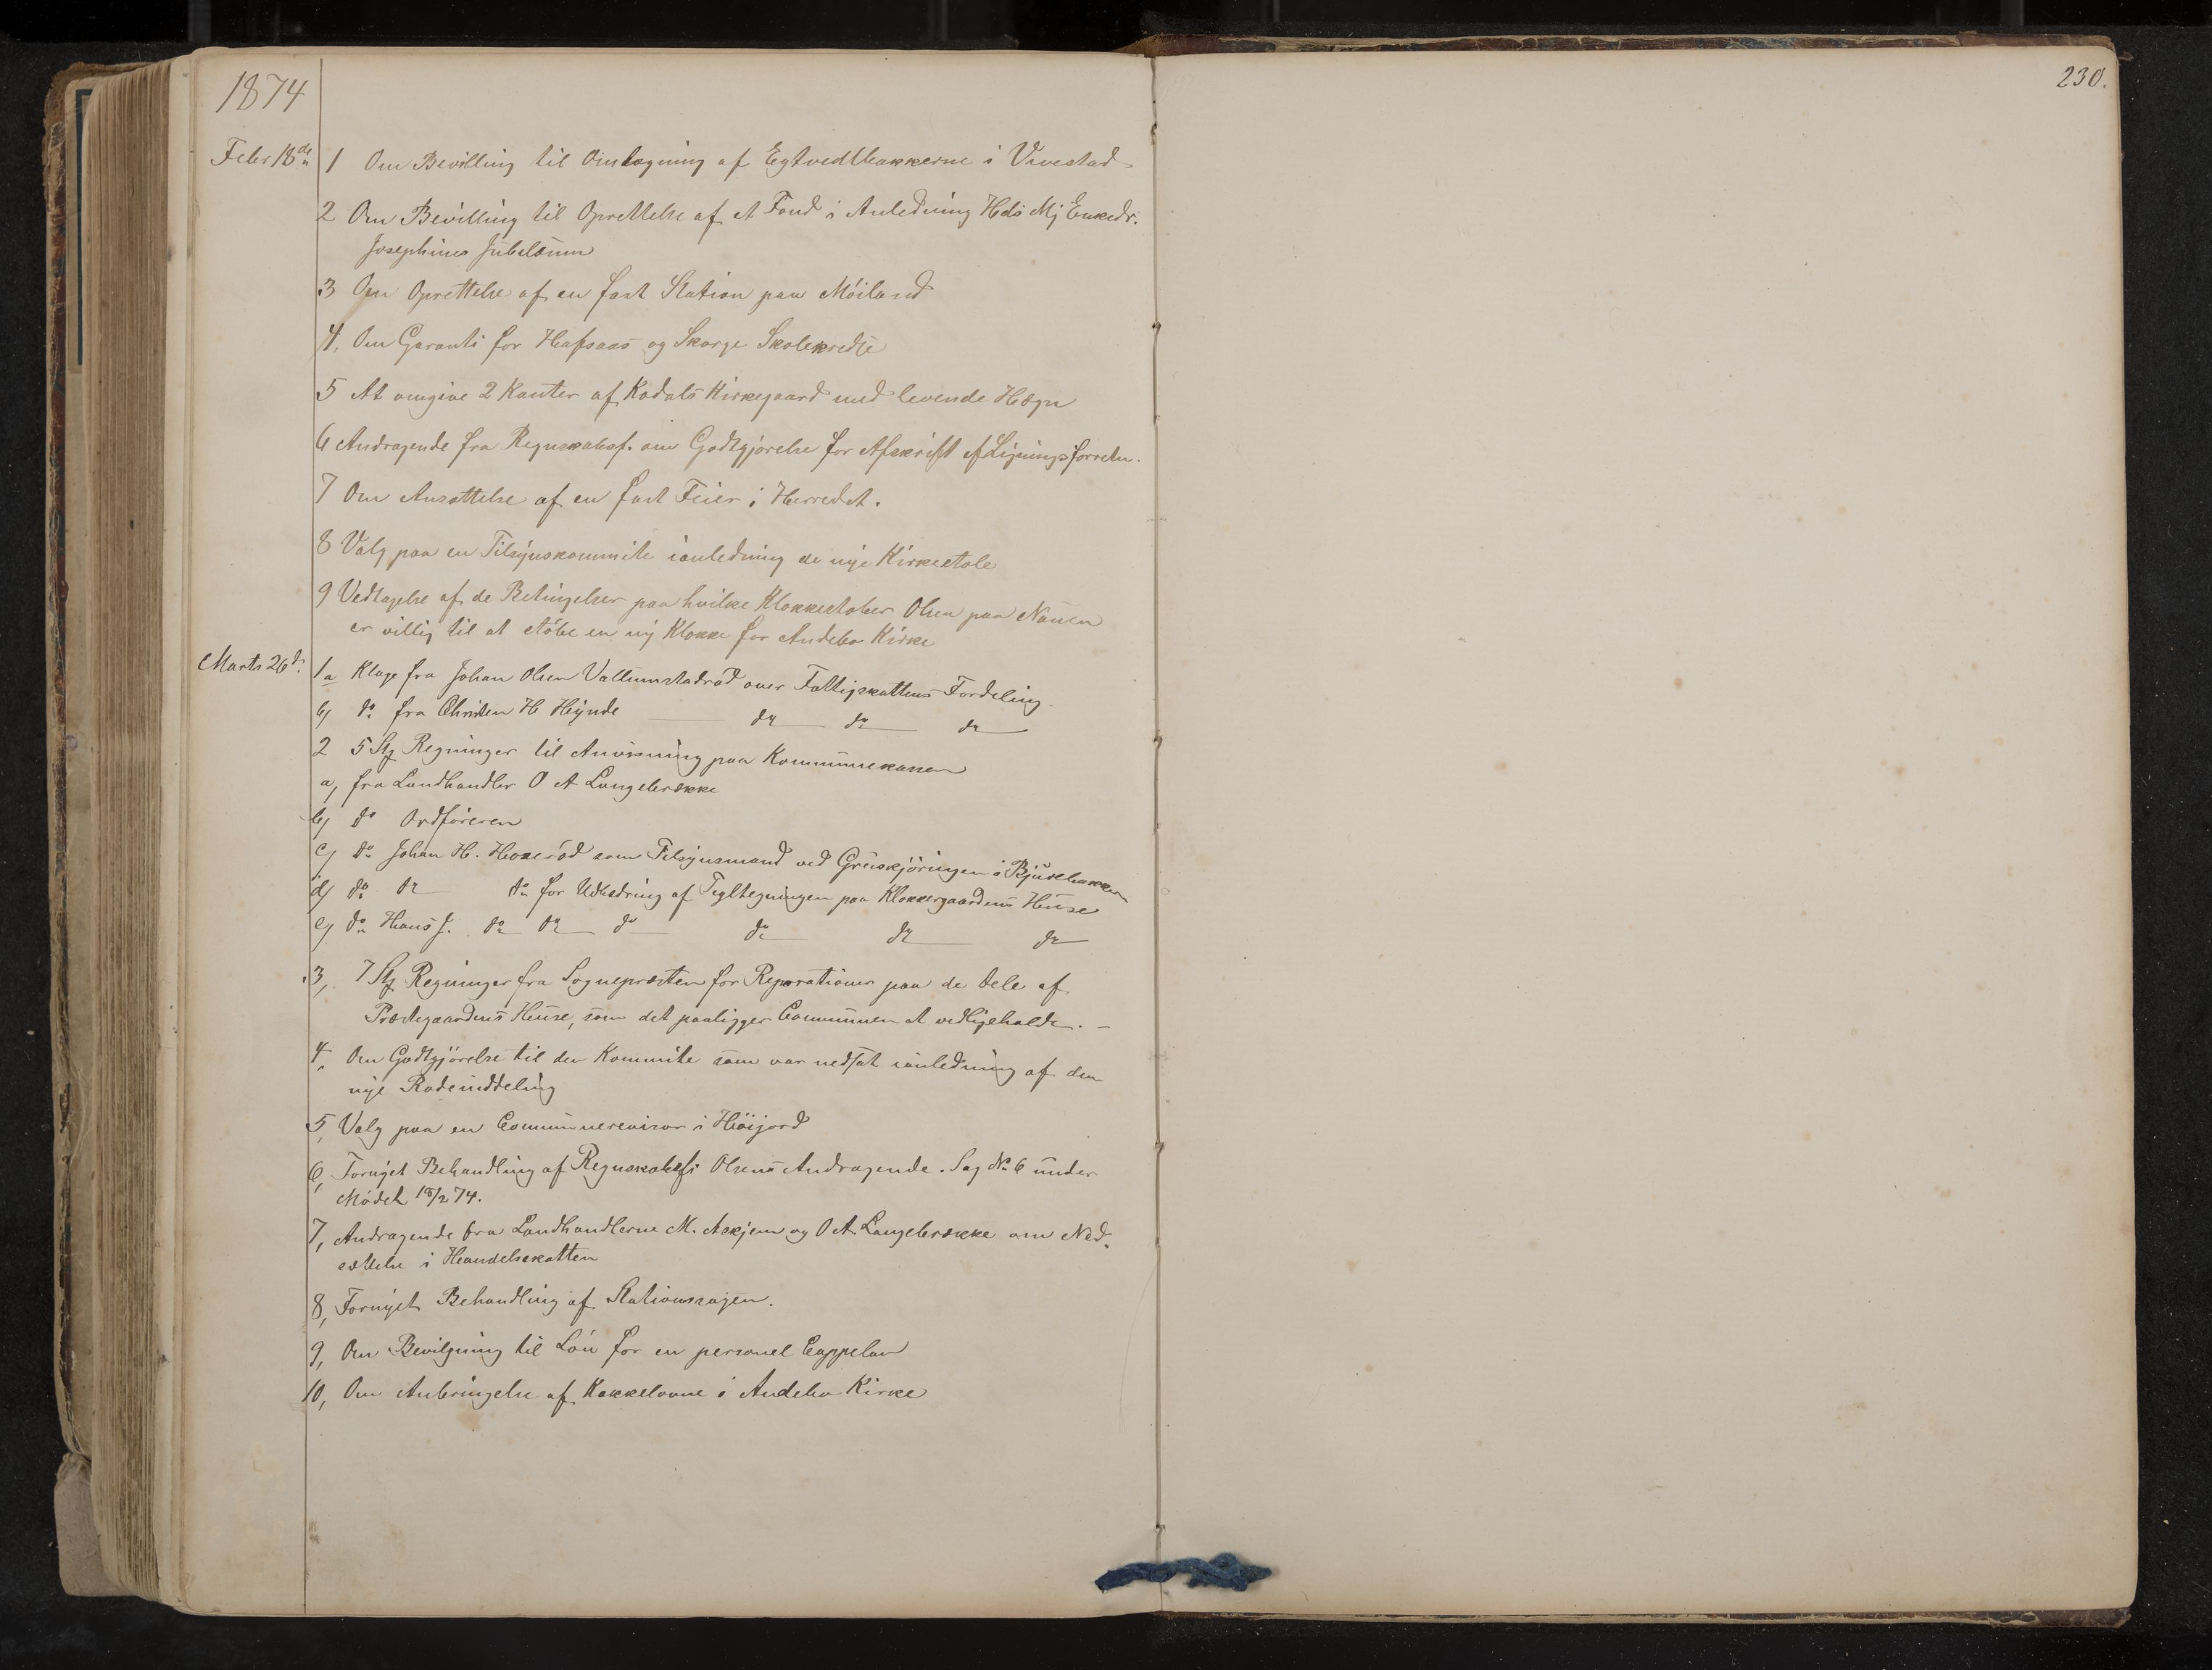 1874
230.
Febr 18de 1 Om Bevilling til Omlægning af Egtvedtbakkerne i Vivestad
2 Om Bevilling til Oprettelse af et Fond i Anledning Hds Mj Enkedr.
Josephines Jubelæum
3 Om Oprettelse af en fast Station paa Möiland
4, Om Garanti for Hafsaas og Skorge Skolekredse
5 At omgive 2 Kanter af Kodals Kirkegaard med levende Hægn
6 Andragende fra Regnskabsf. om Godtgjörelse for Afskrift af Ligningsforretn.
7 Om Ansættelse af en fast Feier i Herredet.
8 Valg paa en Tilsynskommite ianledning de nye Kirkestole
9 Vedtagelse af de Betingelser paa hvilke Klokkestøber Olsen paa Nauen
er villig til at støbe en ny Klokke for Andebo Kirke
Marts 26d. 1a Klage fra Johan Olsen Vallumstadröd over Fattigskattens Fordeling
b) do fra Christen H Hynde do do do
2 5 Stk Regninger til Anvisning paa Kommunekassen
a, fra Landhandler O A Langebrække
b) do Ordföreren
c) do Johan H. Hoxeröd som Tilsynsmand ved Gruskjöringen i
d) do do do for Udbedring af Tegltegningen paa Klokkergaardens Huse
e) do Hans J. do do do do do do
3, 7 Stk Regninger fra Sognepræsten for Reparationer paa de Dele af
Præstegaardens Huse, som det paaligger Communen at vedligeholde. –
4, Om Godtgjörelse til den Kommite som var nedsat ianledning af den
nye Rodeinddeling
5, Valg paa en Communerevisor i Höijord
6, Fornyet Behandling af Regnskabsf. Olsens Andragende. Sag No 6 under
Mödet 18/2 74.
7, Andragende fra Landhandlerne M. Askjem og O A Langebrække om Ned-
sættelse i Handelsskatten
8, Fornyet Behandling af Stationssagen.
9, Om Bevilgning til Lön for en personel Cappelan
10, Om Anbringelse af Kakkelovne i Andebo Kirke